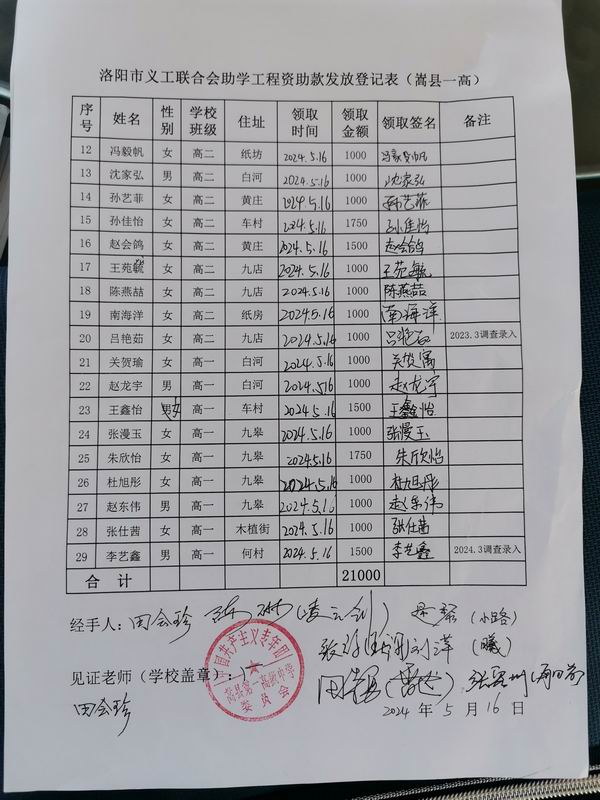 洛阳市义工联合会助学工程资助款发放登记表（嵩县一高）
序号 姓名 性别 学校班级 住址 领取时间 领取金额 领取签名 备注
12 冯毅帆 女 高二 纸坊 2024.5.16 1000 冯毅帆
13 沈家弘 男 高二 白河 2024.5.16 1000 沈家弘
14 孙艺菲 女 高二 黄庄 2024.5.16 1000 孙艺菲
15 孙佳怡 女 高二 车村 2024.5.16 1750 孙佳怡
16 赵会鸽 女 高二 黄庄 2024.5.16 1500 赵会鸽
17 王苑毓 女 高二 九店 2024.5.16 1000 王苑毓
18 陈燕喆 女 高二 九店 2024.5.16 1000 陈燕喆
19 南海洋 女 高二 纸房 2024.5.16 1000 南海洋
20 吕艳茹 女 高二 九店 2024.5.16 1000 吕艳茹 2023.3调查录入
21 关贺瑜 女 高一 白河 2024.5.16 1000 关贺瑜
22 赵龙宇 男 高一 白河 2024.5.16 1000 赵龙宇
23 王鑫怡 女 高一 车村 2024.5.16 1500 王鑫怡
24 张漫玉 女 高一 九皋 2024.5.16 1000 张漫玉
25 朱欣怡 女 高一 九皋 2024.5.16 1750 朱欣怡
26 杜旭彤 女 高一 九皋 2024.5.16 1000 杜旭彤
27 赵东伟 男 高一 九皋 2024.5.16 1000 赵东伟
28 张仕茜 女 高一 木植街 2024.5.16 1000 张仕茜
29 李艺鑫 男 高一 何村 2024.5.16 1500 李艺鑫 2024.3调查录入
合 计 21000
经手人：田会珍 （小路）
刘洋（曦）
见证老师（学校盖章）：
田会珍
中国共产主义青年团
嵩县第一高级中学
委员会
2024 年 5 月 16 日